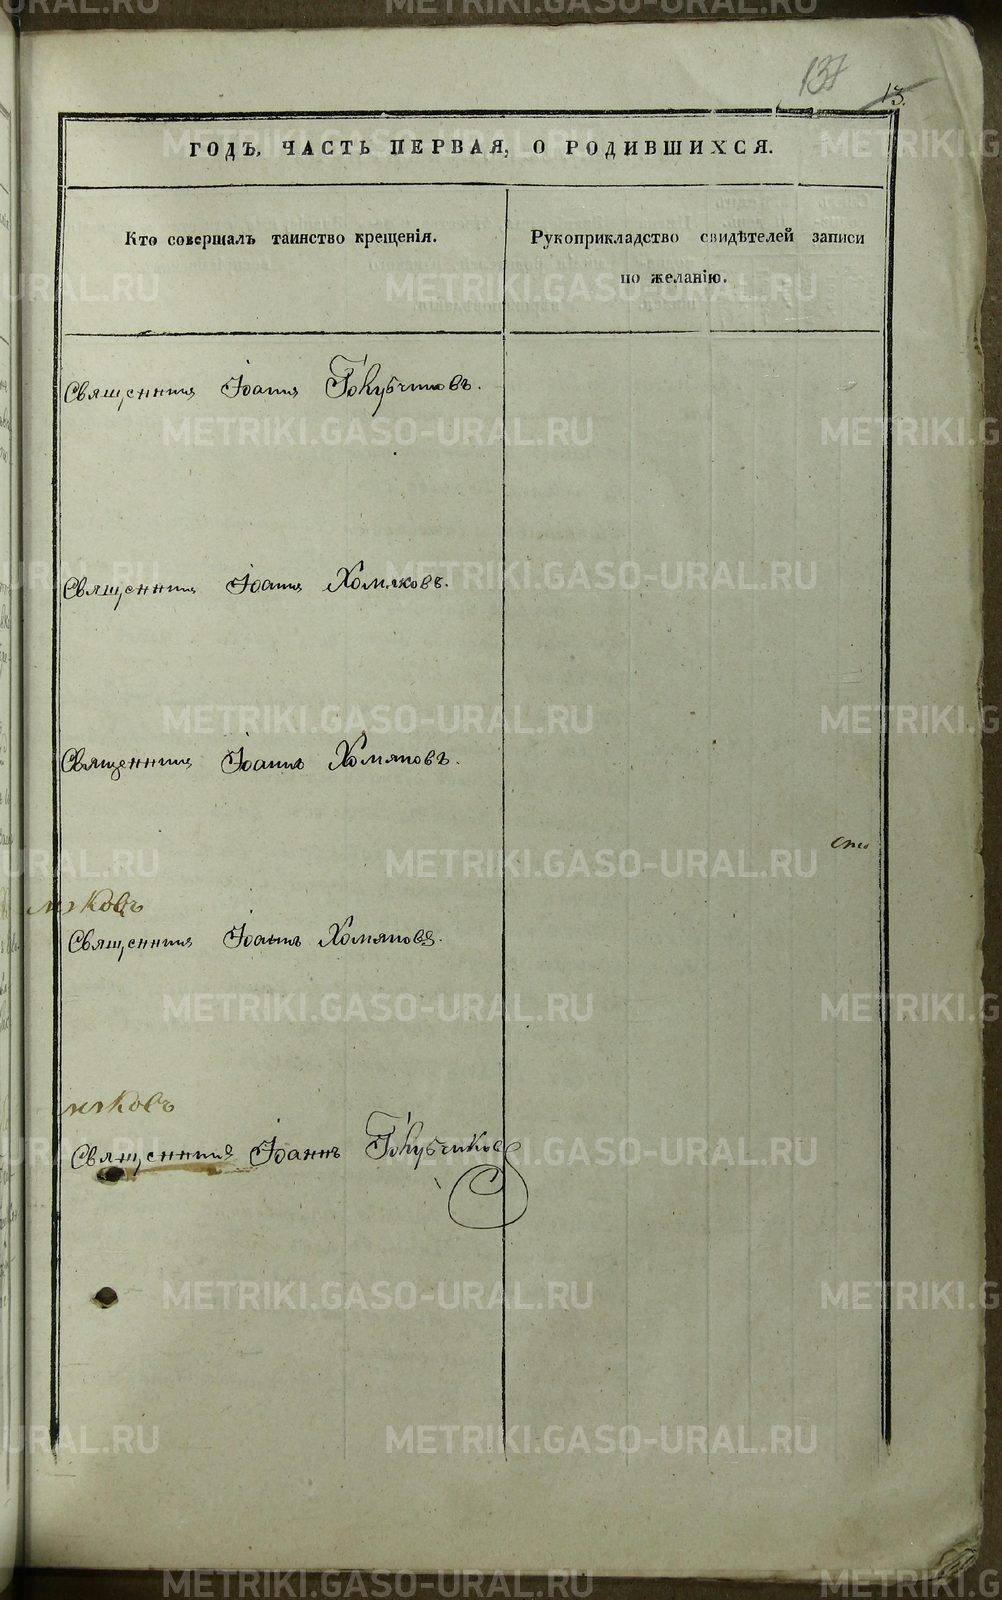 137
13.
ГОДЪ, ЧАСТЬ ПЕРВАЯ, О РОДИВШИХСЯ.
Кто совершалъ таинство крещенія.
Рукоприкладство свидѣтелей записи
по желанію.
Священникъ Іоаннъ Голубчиковъ.
Священникъ Іоаннъ Хомяковъ.
Священникъ Іоаннъ Хомяковъ.
Священникъ Іоаннъ Хомяковъ.
Священникъ Іоаннъ Голубчиковъ
METRIKI.GASO-URAL.RU